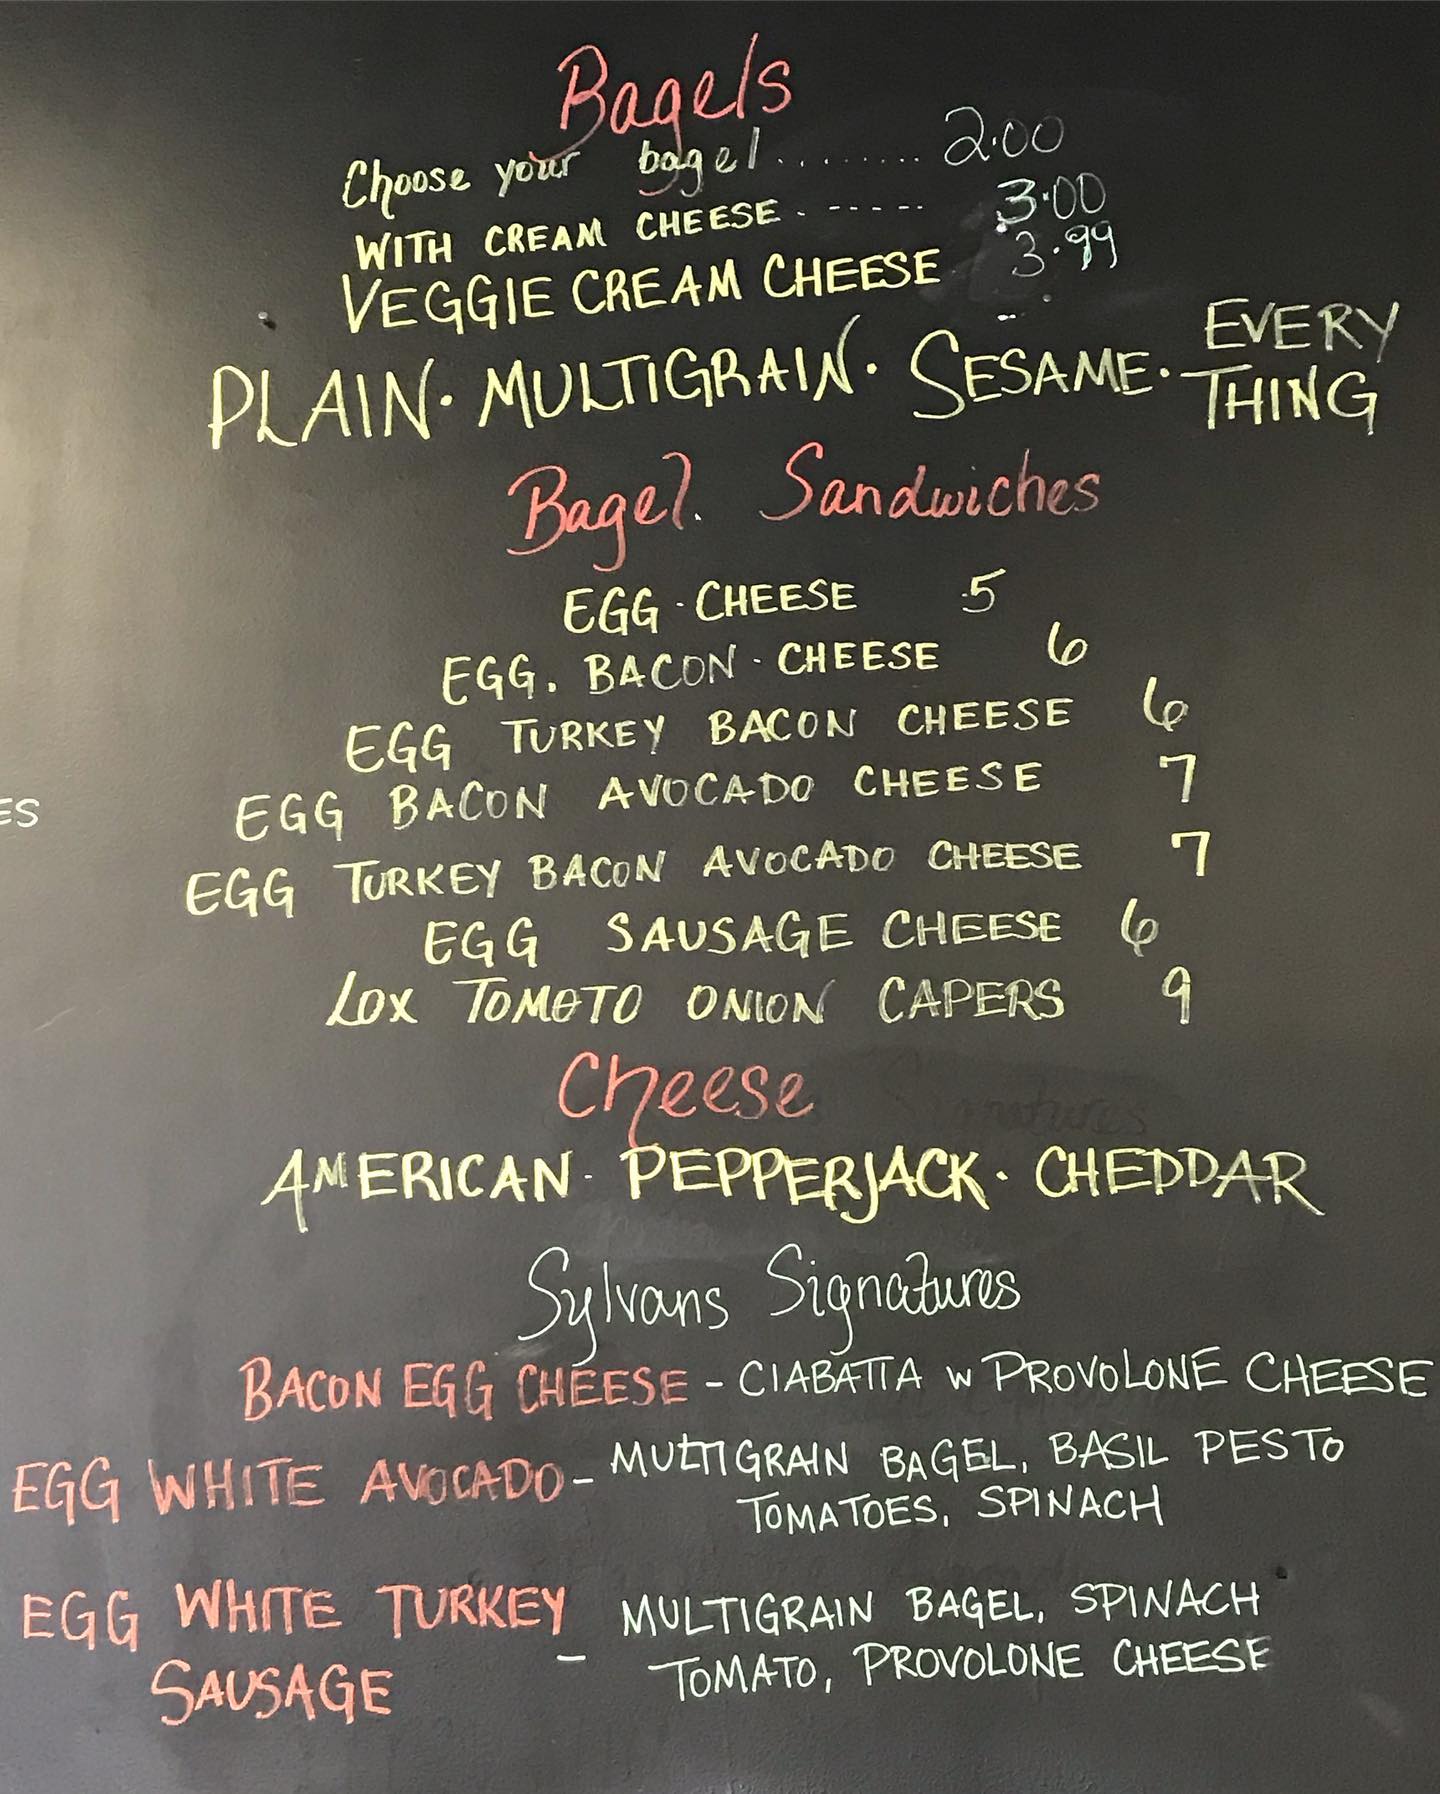 Bagels
Choose your bagel......... 2.00
WITH CREAM CHEESE - ----- 3.00
VEGGIE CREAM CHEESE 3.99
PLAIN · MULTIGRAIN · SESAME · EVERY THING
Bagel. Sandwiches
EGG · CHEESE 5
EGG. BACON · CHEESE 6
EGG TURKEY BACON CHEESE 6
EGG BACON AVOCADO CHEESE 7
ES
EGG TURKEY BACON AVOCADO CHEESE 7
EGG SAUSAGE CHEESE 6
LOX TOMOTO ONION CAPERS 9
Cheese
Signatures
AMERICAN · PEPPERJACK · CHEDDAR
Sylvans Signatures
BACON EGG CHEESE - CIABATTA W PROVOLONE CHEESE
EGG WHITE AVOCADO - MULTIGRAIN BAGEL, BASIL PESTO
TOMATOES, SPINACH
EGG WHITE TURKEY - MULTIGRAIN BAGEL, SPINACH
SAUSAGE TOMATO, PROVOLONE CHEESE